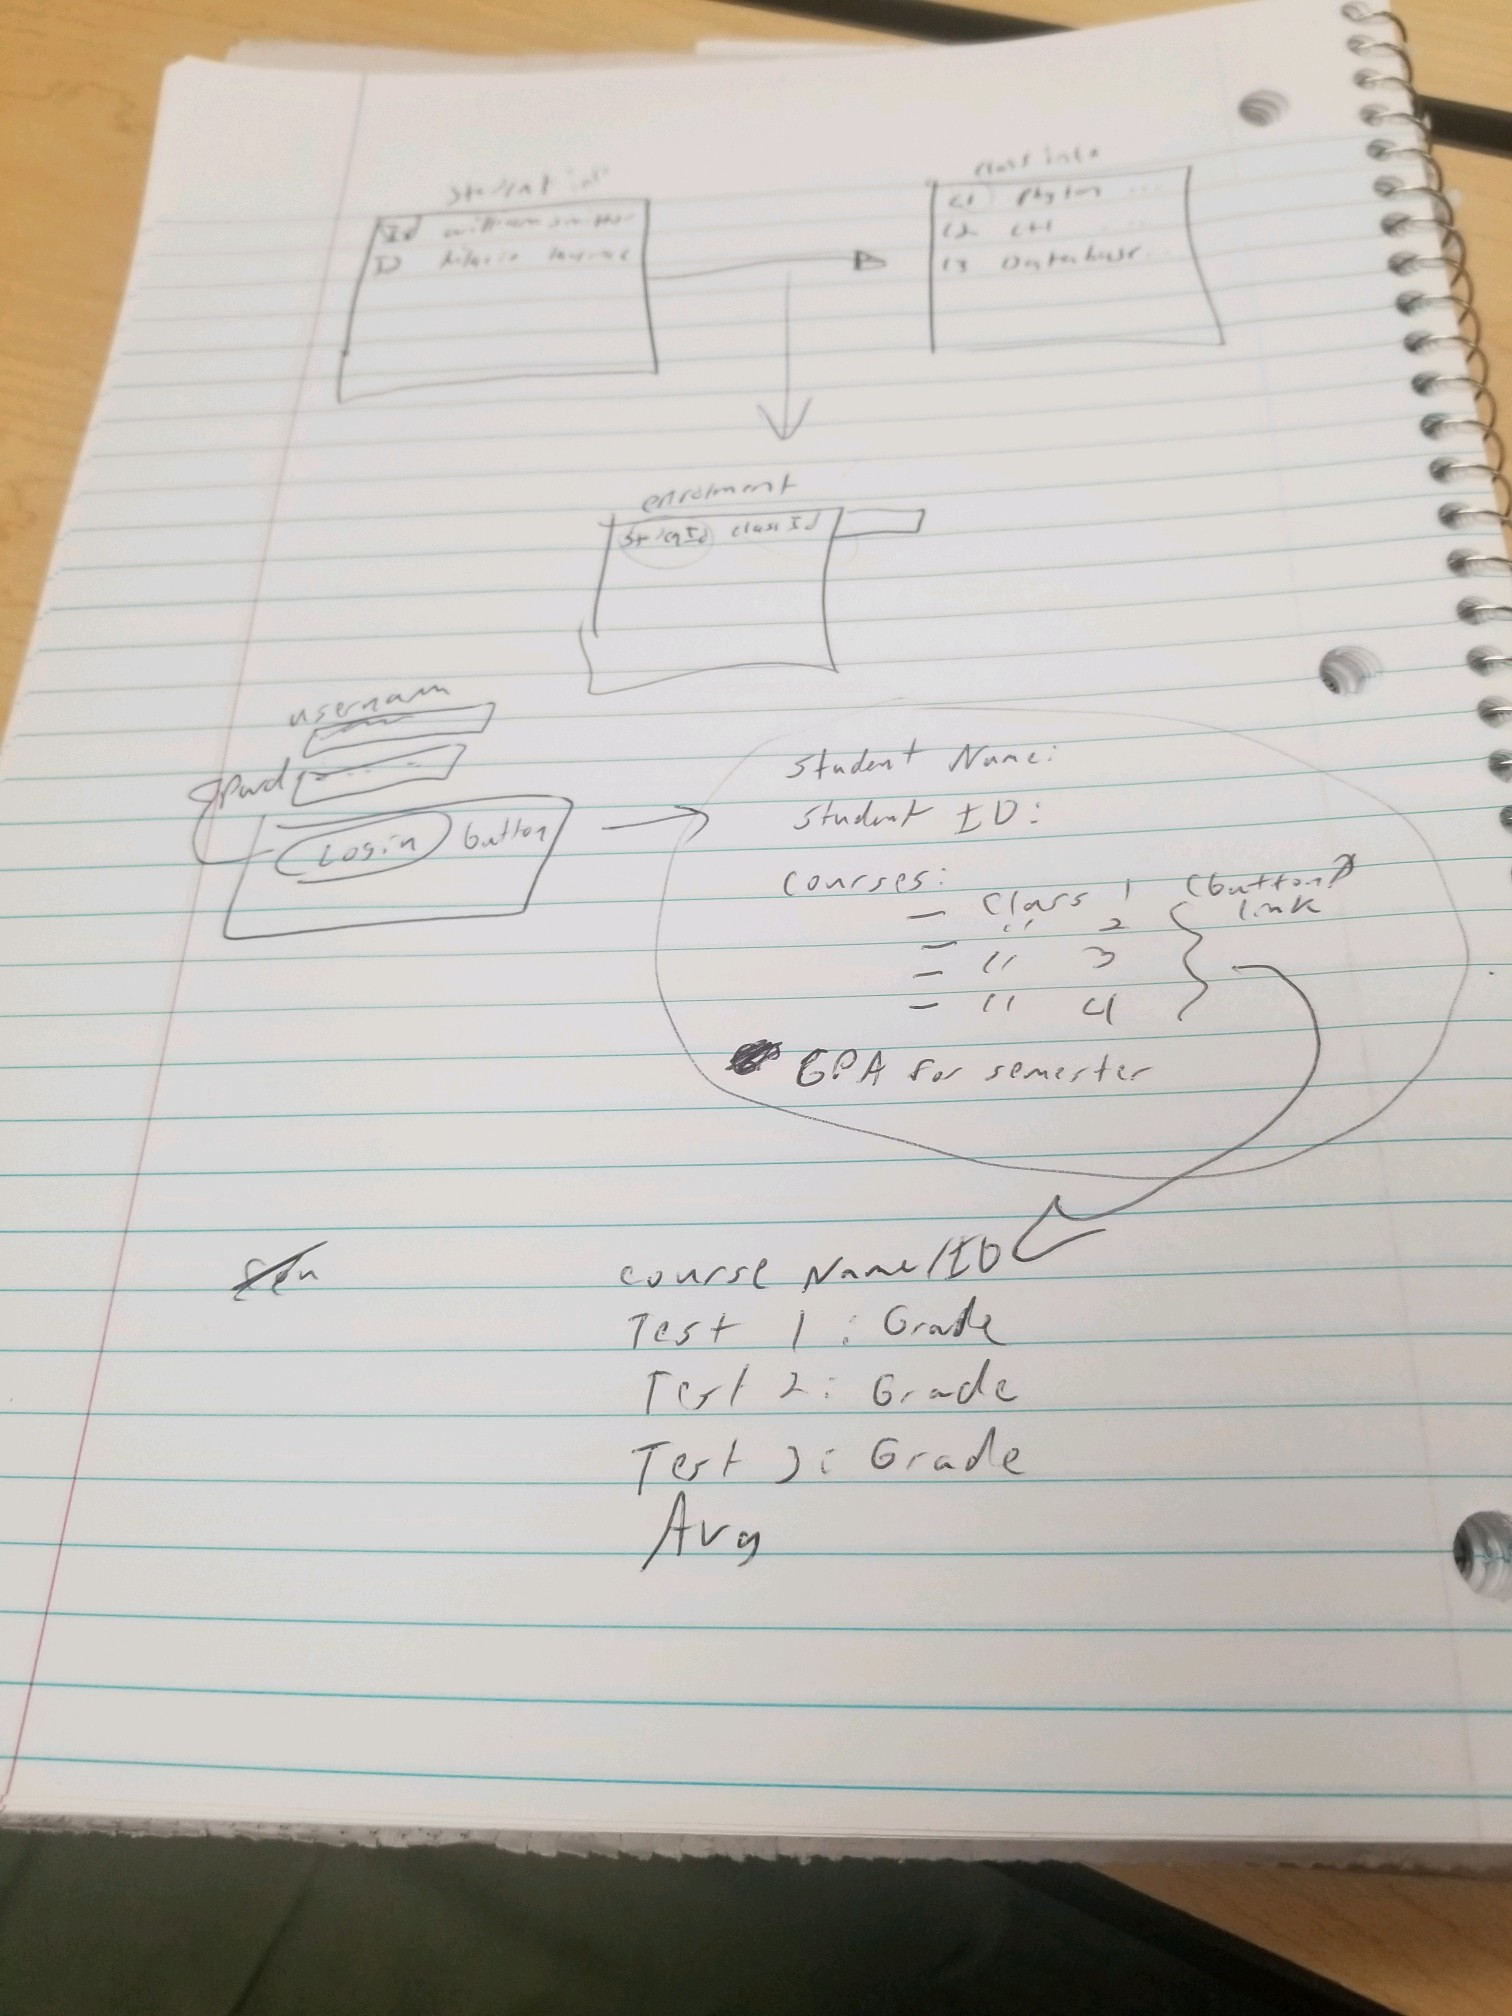 Student
Id william
ID
class info
C1 Phyton
C2 C++
C3 Database
enrolment
class Id
usernam
Pwd
Login button
Student Name:
Student ID:
Courses:
– Class 1 (button)
link
– " 2
– " 3
– " 4
GPA for semester
Course Name/ID
Test 1 : Grade
Test 2 : Grade
Test 3 : Grade
Avg